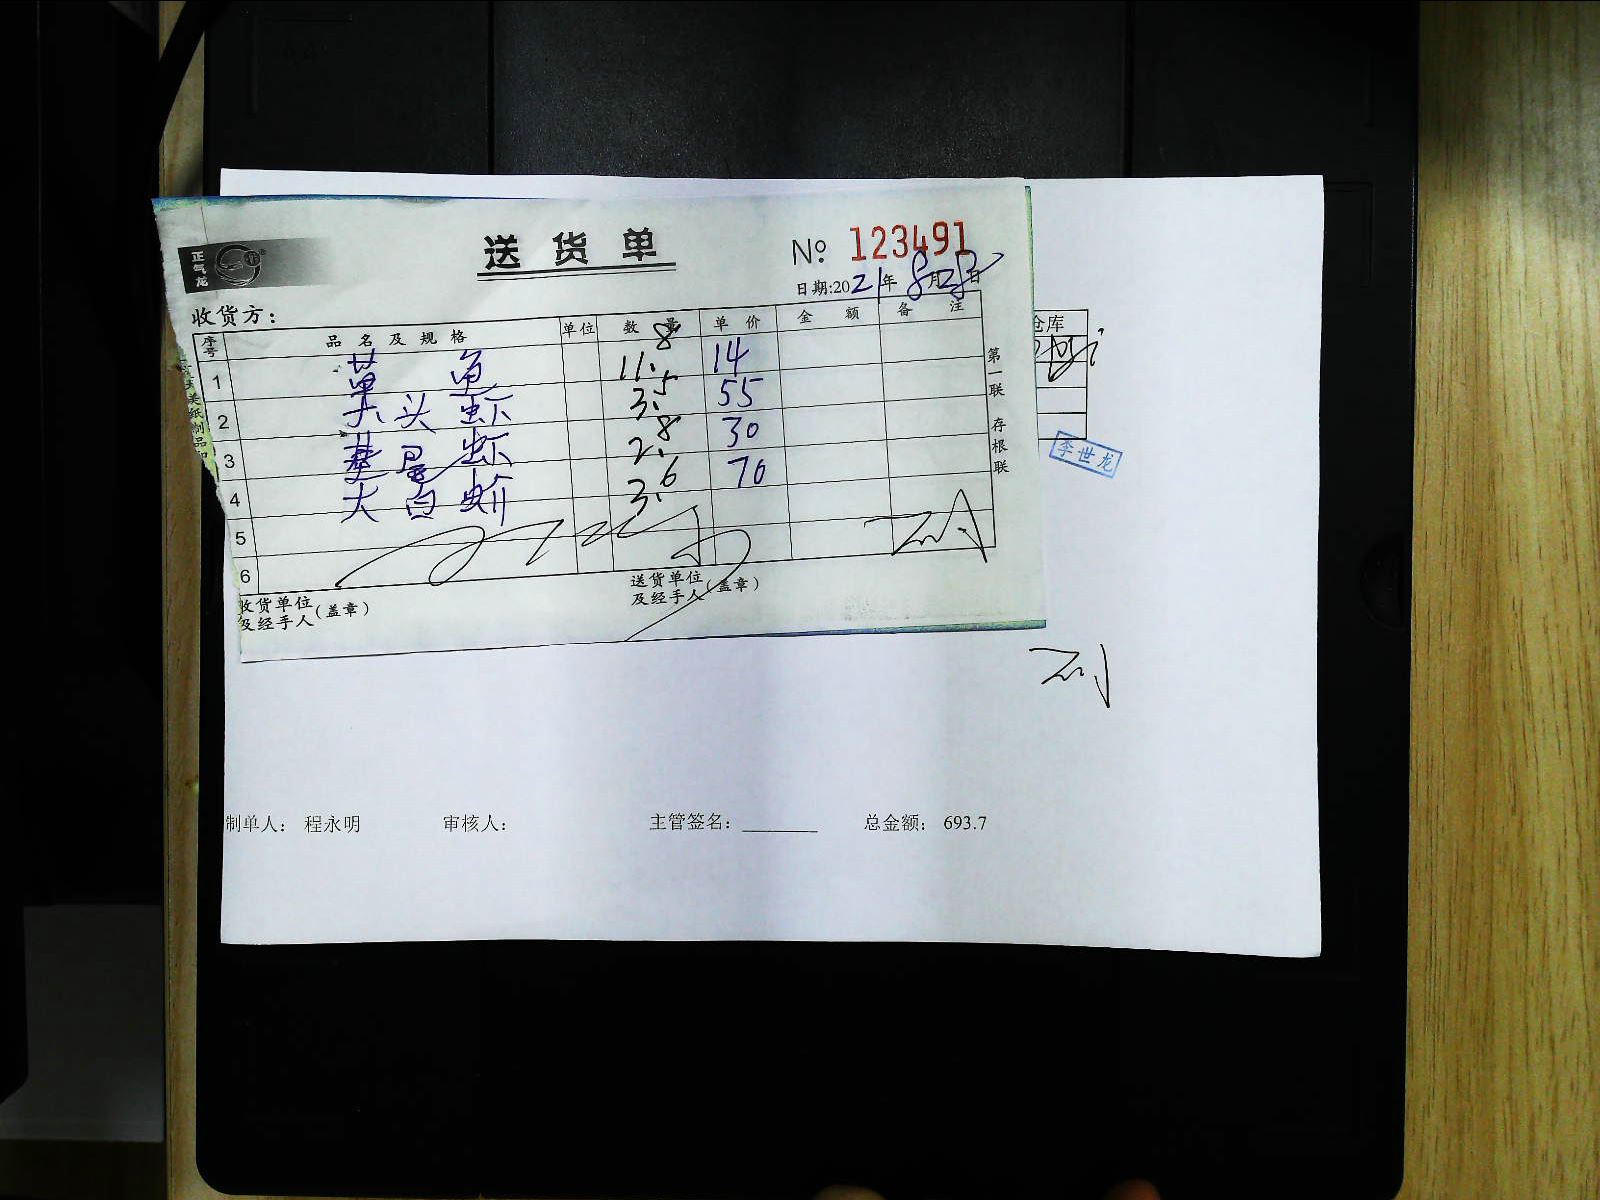 正气龙
送货单
№ 123491
日期:2021年8月28日
收货方：
仓库
序号 品名及规格 单位 数量 单价 金额 备注
1 草鱼 11.8 14
2 大头虾 3.5 55
3 基尾虾 2.8 30
4 大白虾 3.6 70
5
6
第一联 存根联
李世龙
收货单位及经手人(盖章)
送货单位及经手人(盖章)
制单人： 程永明 审核人： 主管签名： 总金额： 693.7